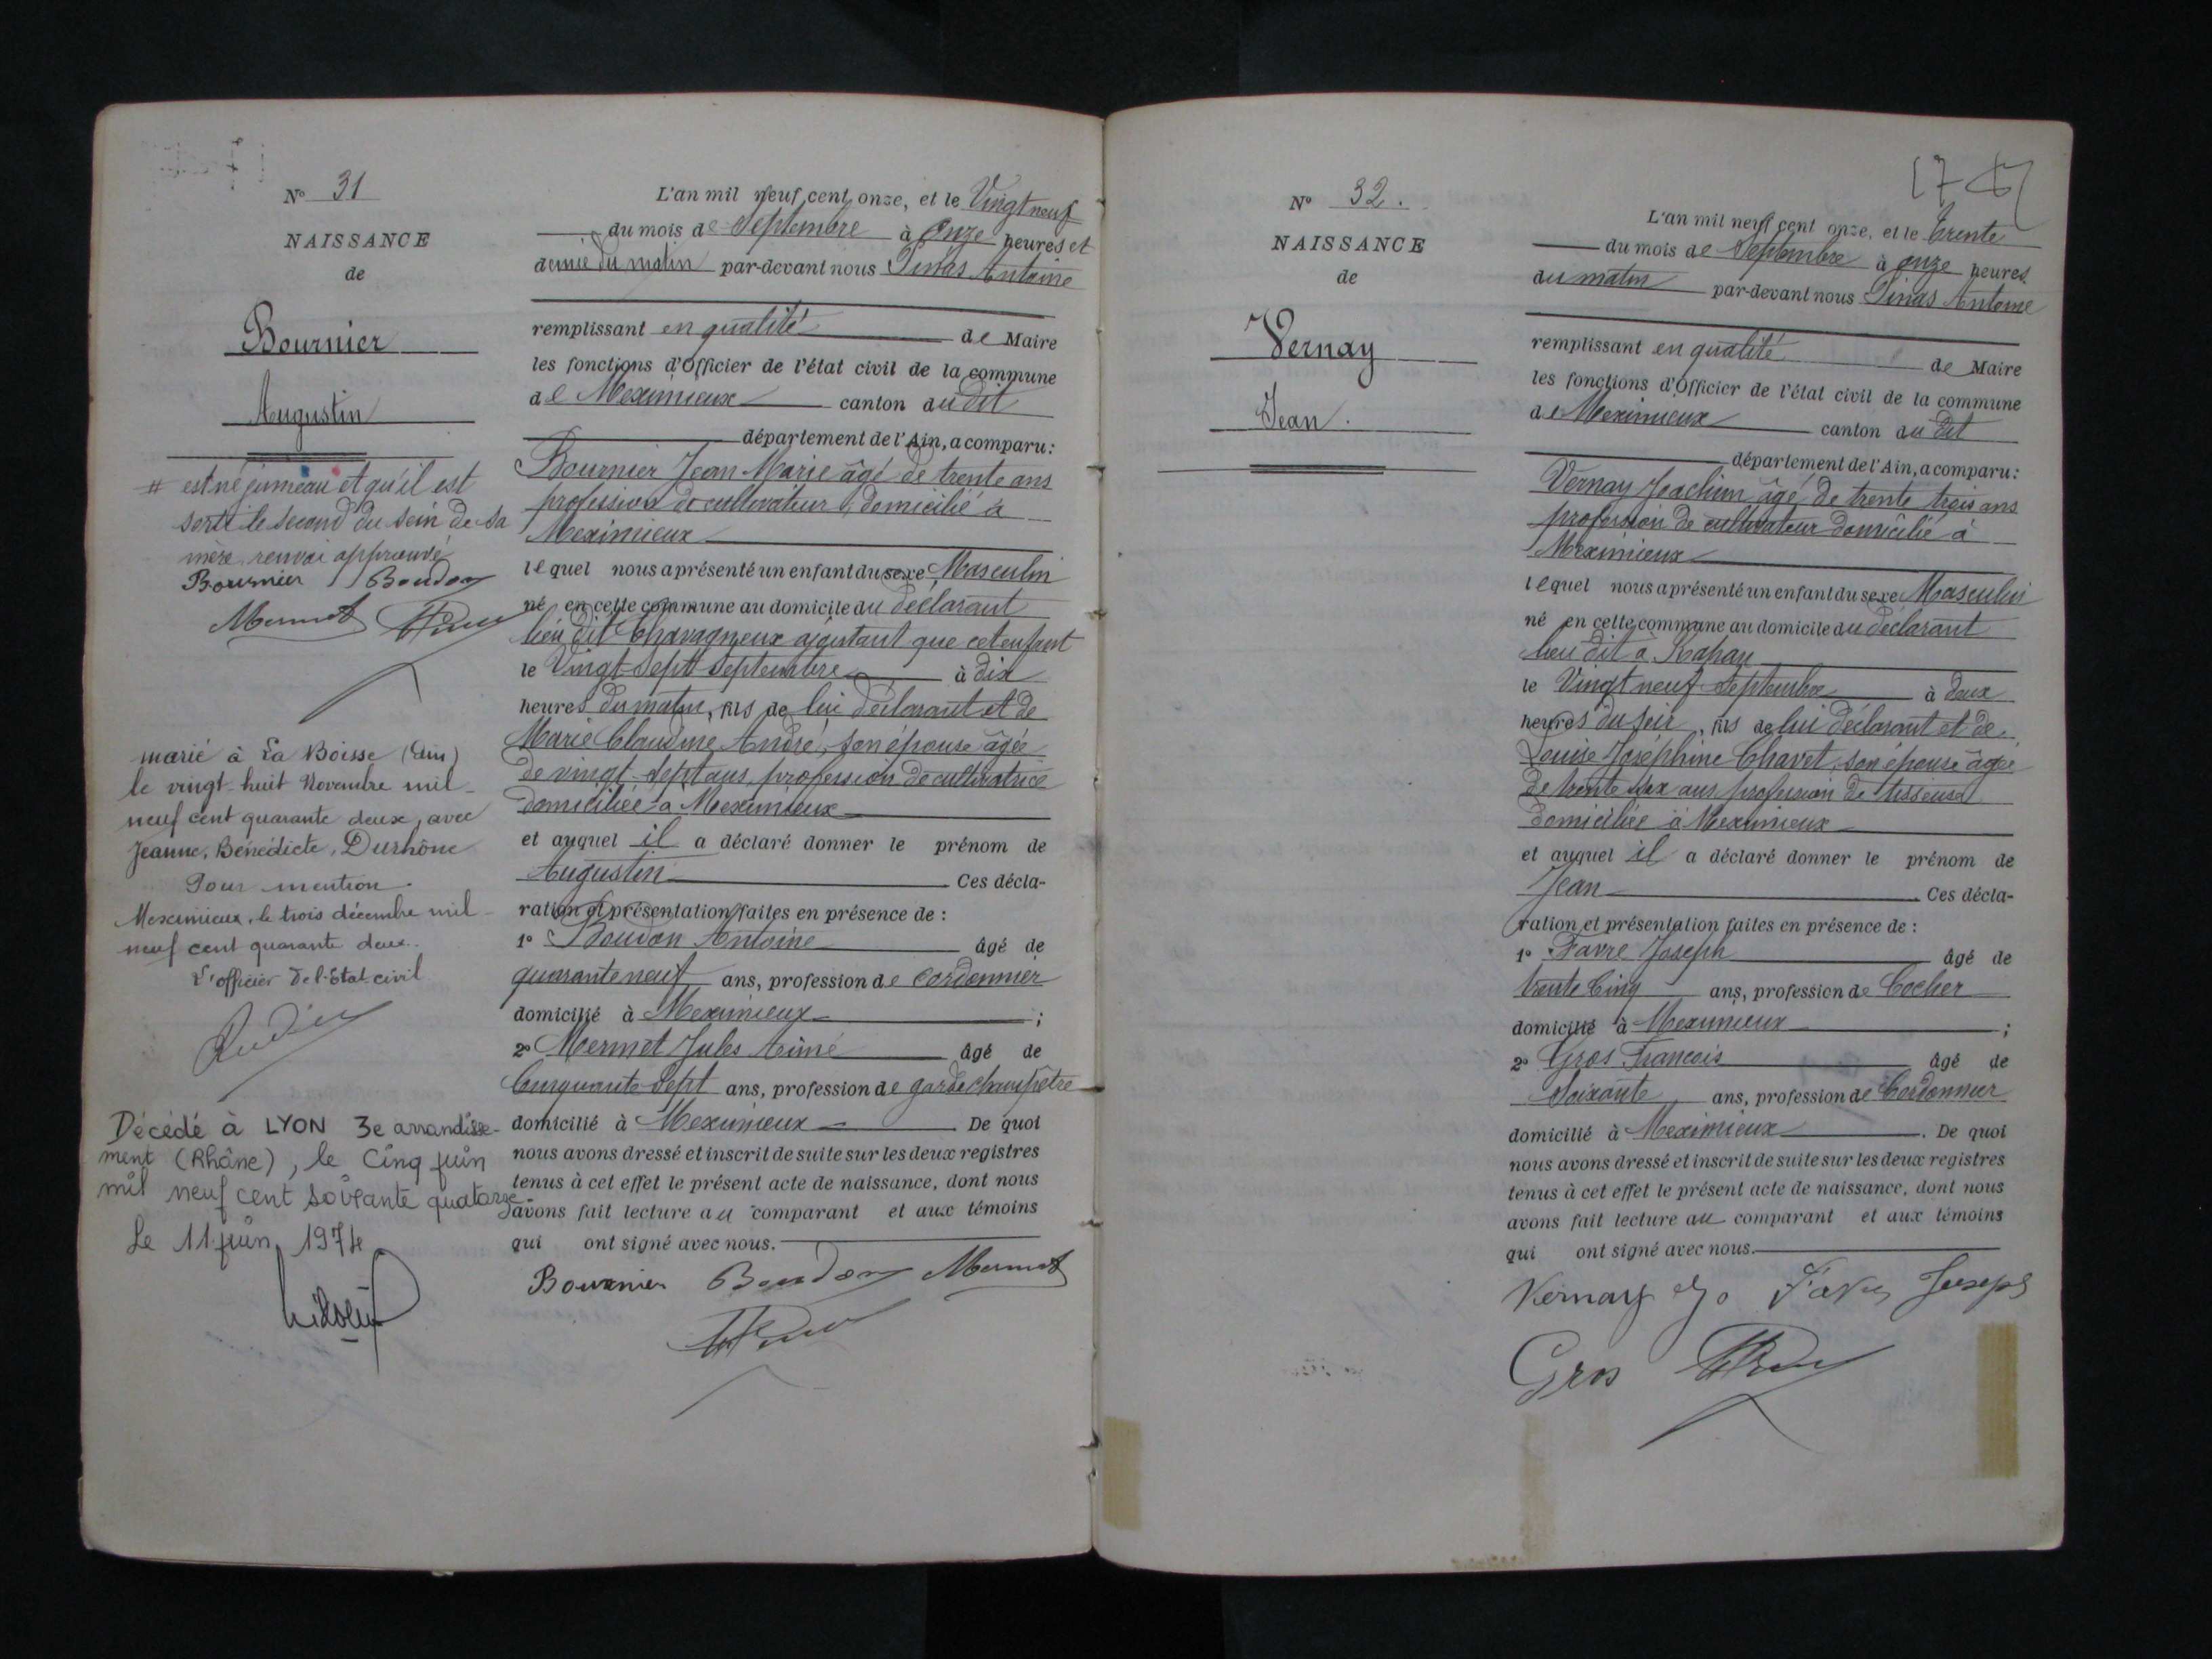 N° 31
NAISSANCE
de
Bournier
Augustin
# est né jumeau et qu'il est
sorti le second du sein de sa
mère renvoi approuvé
Bournier Boudon
Mermet
marié à La Boisse (Ain)
le vingt-huit Novembre mil-
neuf cent quarante deux, avec
Jeanne, Bénédicte, Durhône
Pour mention.
Meximieux, le trois décembre mil-
neuf cent quarante deux.
L'officier de l'Etat-civil
Décédé à LYON 3e arrondisse-
ment (Rhône), le Cinq juin
mil neuf cent soixante quatorze
Le 11 juin 1974
L'an mil neuf cent onze, et le Vingt neuf
du mois de Septembre à Onze heures et
demie du matin par-devant nous Antoine
remplissant en qualité de Maire
les fonctions d'Officier de l'état civil de la commune
de Meximieux canton dudit
département de l'Ain, a comparu:
Bournier Jean Marie âgé de trente ans
profession de cultivateur domicilié à
Meximieux
lequel nous a présenté un enfant du sexe Masculin
né en cette commune au domicile du déclarant
lieu dit Chavagneux ajoutant que cet enfant
le Vingt-Sept Septembre à dix
heures du matin, fils de lui déclarant et de
Marie Claudine André, son épouse âgée
de vingt-sept ans, profession de cultivatrice
domiciliée à Meximieux
et auquel il a déclaré donner le prénom de
Augustin Ces décla-
ration et présentation faites en présence de :
1° Boudon Antoine âgé de
quarante neuf ans, profession de Cordonnier
domicilié à Meximieux ;
2° Mermet Jules Aimé âgé de
Cinquante Sept ans, profession de garde champêtre
domicilié à Meximieux De quoi
nous avons dressé et inscrit de suite sur les deux registres
tenus à cet effet le présent acte de naissance, dont nous
avons fait lecture au comparant et aux témoins
qui ont signé avec nous.
Bournier Boudon Mermet
N° 32.
NAISSANCE
de
Vernay
Jean.
17
L'an mil neuf cent onze, et le trente
du mois de Septembre à onze heures
du matin par-devant nous Antoine
remplissant en qualité de Maire
les fonctions d'Officier de l'état civil de la commune
de Meximieux canton dudit
département de l'Ain, a comparu:
Vernay Joachim âgé de trente trois ans
profession de cultivateur domicilié à
Meximieux
lequel nous a présenté un enfant du sexe Masculin
né en cette commune au domicile du déclarant
lieu dit à
le Vingt neuf Septembre à deux
heures du soir, fils de lui déclarant et de
Louise Joséphine Chavet, son épouse âgée
de trente six ans, profession de tisseuse
domiciliée à Meximieux
et auquel il a déclaré donner le prénom de
Jean Ces décla-
ration et présentation faites en présence de :
1° Favre Joseph âgé de
trente Cinq ans, profession de Cocher
domicilié à Meximieux ;
2° Gros François âgé de
Soixante ans, profession de Cordonnier
domicilié à Meximieux. De quoi
nous avons dressé et inscrit de suite sur les deux registres
tenus à cet effet le présent acte de naissance, dont nous
avons fait lecture au comparant et aux témoins
qui ont signé avec nous.
Vernay Jo Favre Joseph
Gros